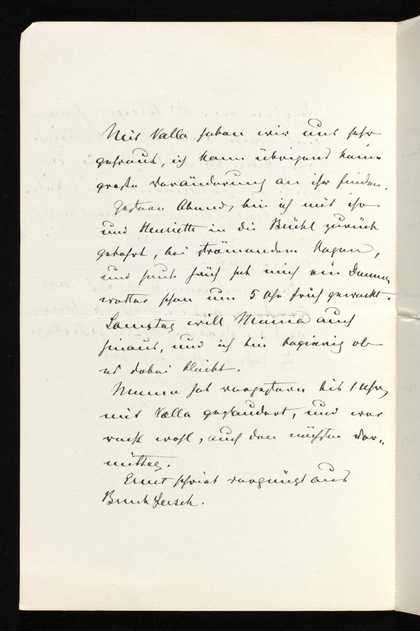 Mit Valla haben wir uns sehr
gefreut, ich kann übrigens keine
große Veränderung an ihr finden.
Gestern Abend, bin ich mit ihr
und Henriette in die Brühl zurück
gekehrt, bei strömendem Regen,
und heute früh hat mich ein Donner
wetter schon um 5 Uhr früh geweckt.
Samstag will Minna auch
hinaus, und ich bin begierig ob
es dabei bleibt.
Minna hat vorgestern bis 1 Uhr,
mit Valla geplaudert, und war
recht wohl, auch den nächsten Vor-
mittag.
Ernst schrieb vergnügt aus